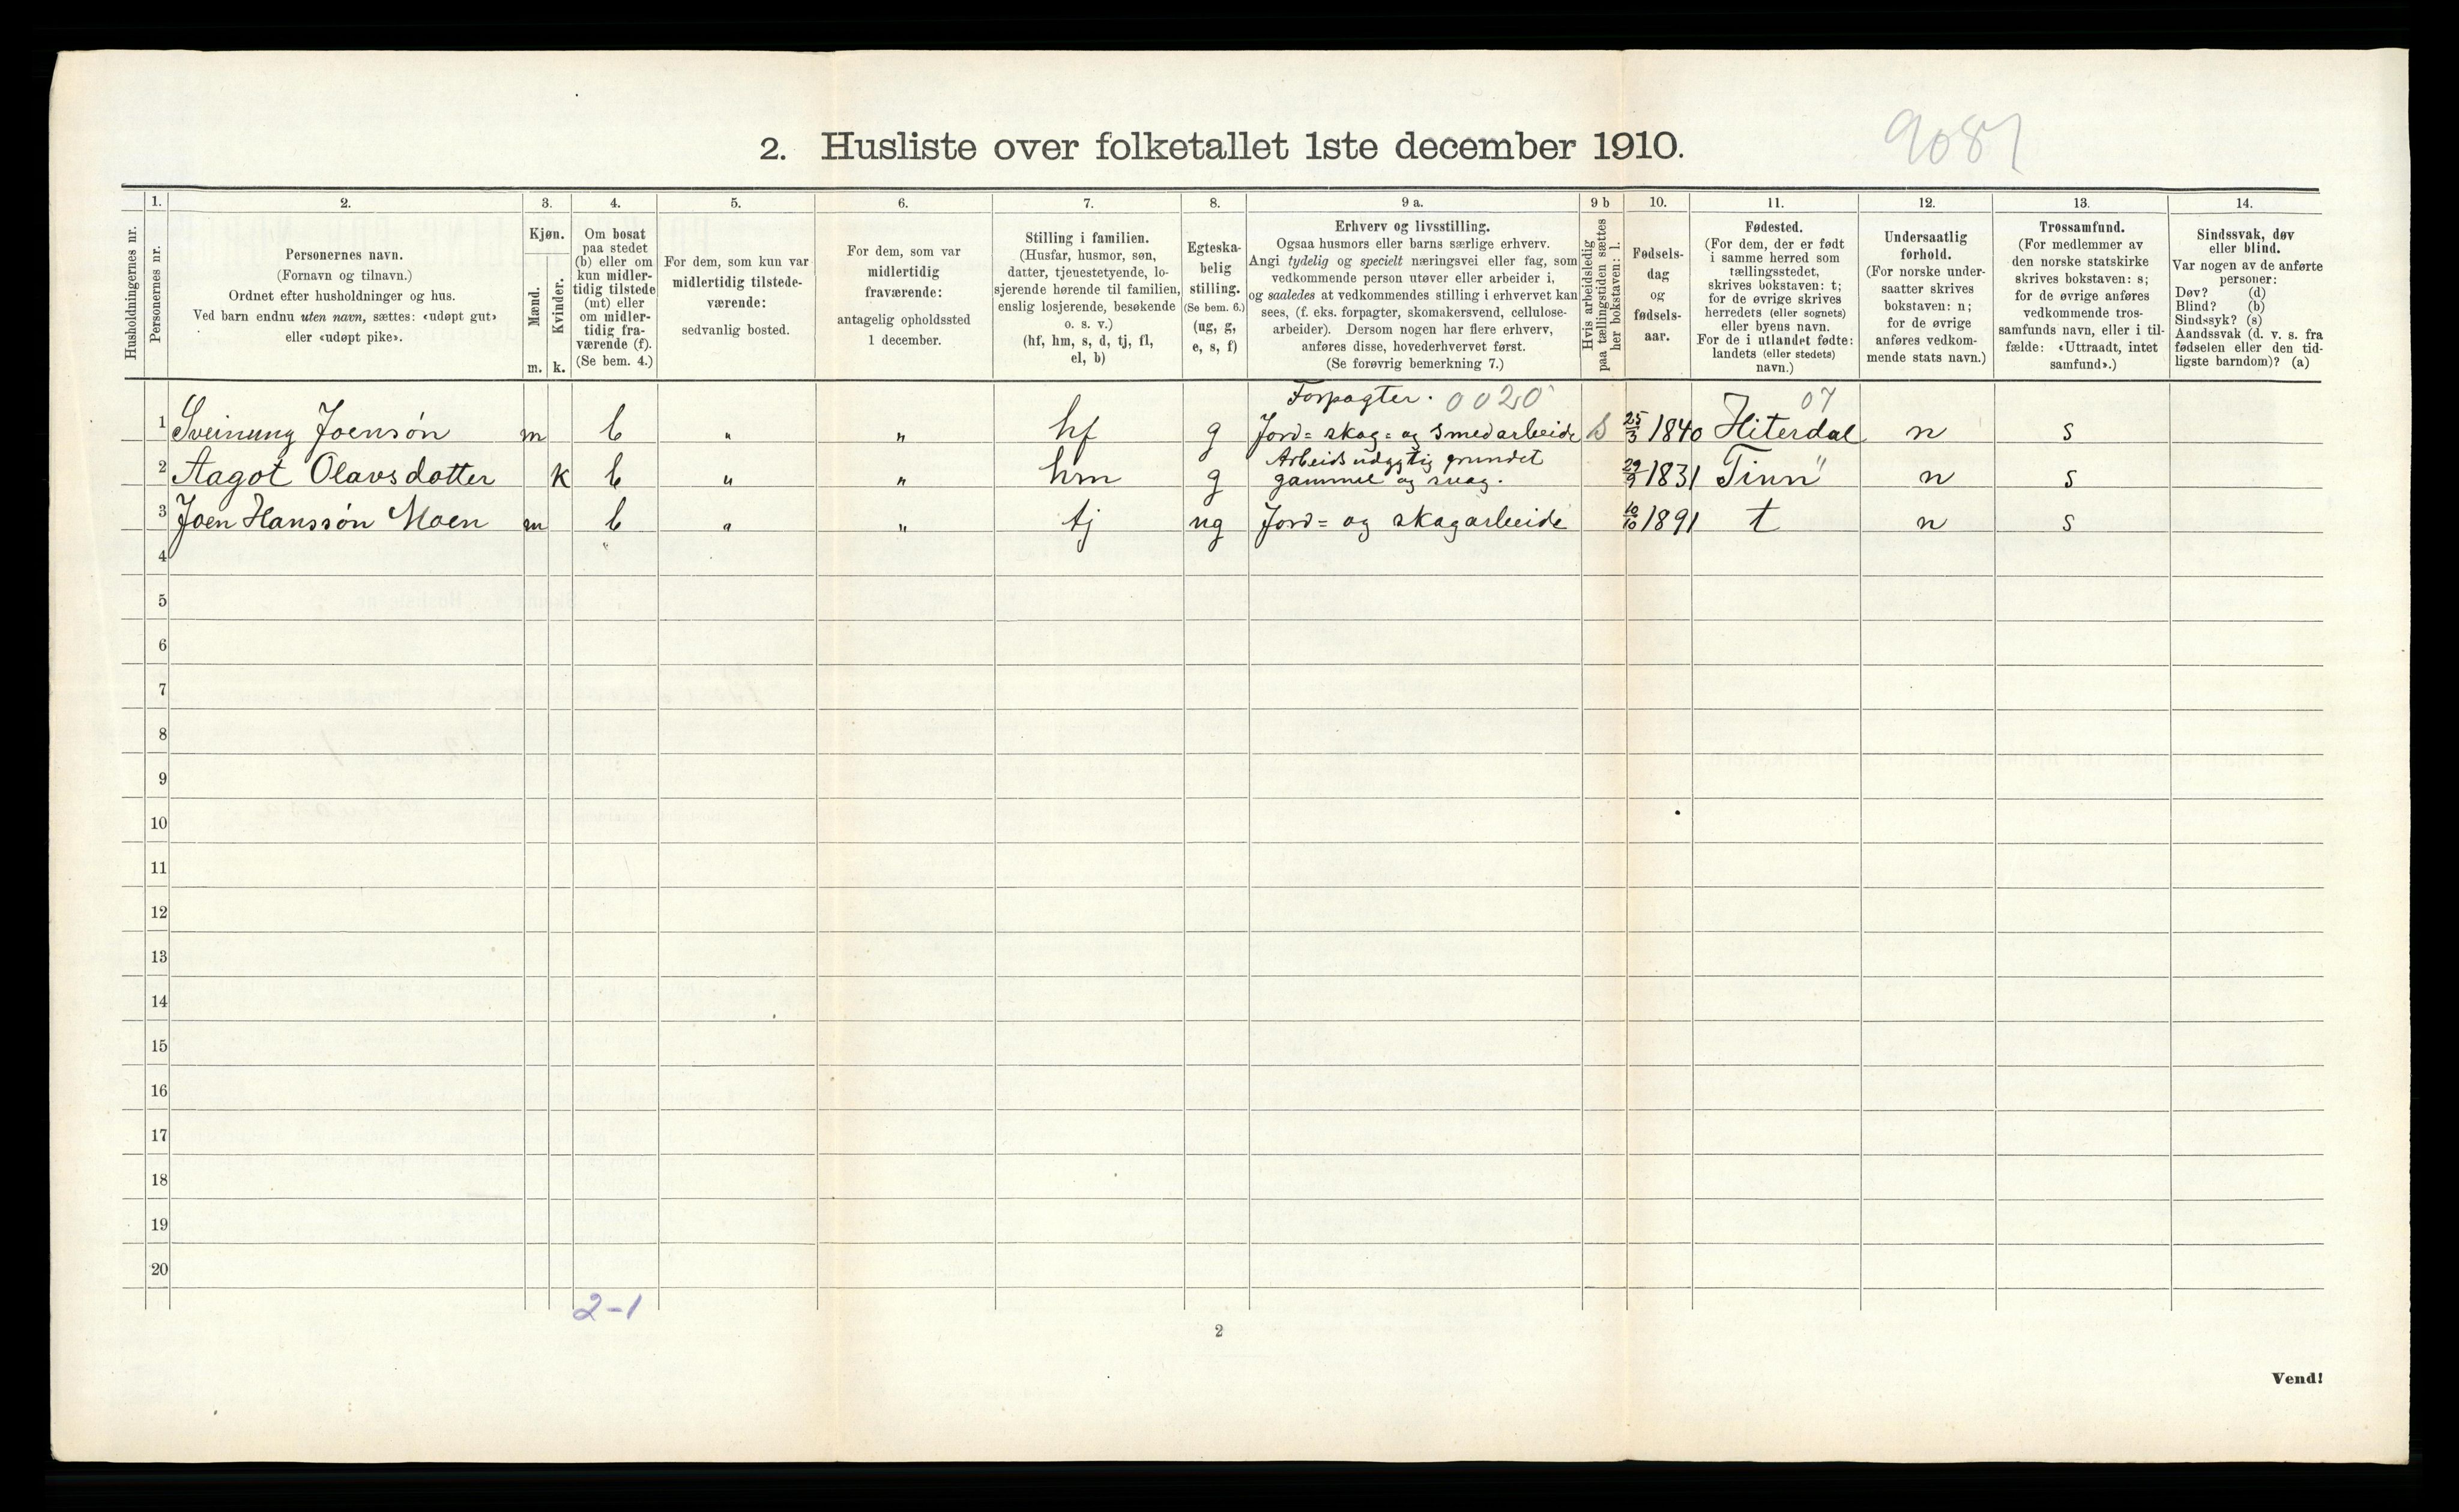 2. Husliste over folketallet 1ste december 1910.
9087
Husholdningernes nr.
1.
Personernes nr.
2.
Personernes navn.
(Fornavn og tilnavn.)
Ordnet efter husholdninger og hus.
Ved barn endnu uten navn, sættes: «udøpt gut»
eller «udøpt pike».
3.
Kjøn.
Mænd.
Kvinder.
m. k.
4.
Om bosat
paa stedet
(b) eller om
kun midler-
tidig tilstede
(mt) eller
om midler-
tidig fra-
værende (f).
(Se bem. 4.)
5.
For dem, som kun var
midlertidig tilstede-
værende:
sedvanlig bosted.
6.
For dem, som var
midlertidig
fraværende:
antagelig opholdssted
1 december.
7.
Stilling i familien.
(Husfar, husmor, søn,
datter, tjenestetyende, lo-
sjerende hørende til familien,
enslig losjerende, besøkende
o. s. v.)
(hf, hm, s, d, tj, fl,
el, b)
8.
Egteska-
belig
stilling.
(Se bem. 6.)
(ug, g,
e, s, f)
9 a.
Erhverv og livsstilling.
Ogsaa husmors eller barns særlige erhverv.
Angi tydelig og specielt næringsvei eller fag, som
vedkommende person utøver eller arbeider i,
og saaledes at vedkommendes stilling i erhvervet kan
sees, (f. eks. forpagter, skomakersvend, cellulose-
arbeider). Dersom nogen har flere erhverv,
anføres disse, hovederhvervet først.
(Se forøvrig bemerkning 7.)
9 b
Hvis arbeidsledig
paa tællingstiden sættes
her bokstaven: l.
10.
Fødsels-
dag
og
fødsels-
aar.
11.
Fødested.
(For dem, der er født
i samme herred som
tællingsstedet,
skrives bokstaven: t;
for de øvrige skrives
herredets (eller sognets)
eller byens navn.
For de i utlandet fødte:
landets (eller stedets)
navn.)
12.
Undersaatlig
forhold.
(For norske under-
saatter skrives
bokstaven: n;
for de øvrige
anføres vedkom-
mende stats navn.)
13.
Trossamfund.
(For medlemmer av
den norske statskirke
skrives bokstaven: s;
for de øvrige anføres
vedkommende tros-
samfunds navn, eller i til-
fælde: «Uttraadt, intet
samfund».)
14.
Sindssvak, døv
eller blind.
Var nogen av de anførte
personer:
Døv? (d)
Blind? (b)
Sindssyk? (s)
Aandssvak (d. v. s. fra
fødselen eller den tid-
ligste barndom)? (a)
Forpagter. 0020 07
1 Sveinung Joensøn m b " " hf g Jord= skog= og smedarbeide 25/3 1840 Hiterdal n s
Arbeidsudygtig grundet
2 Aagot Olavsdatter k b " " hm g gammel og svag. 29/9 1831 Tinn " n s
3 Joen Hanssøn Moen m b " " tj ug Jord= og skogarbeide 10/10 1891 t n s
4 "
5
6
7
8
9
10
11
12
13
14
15
16
17
18
19
20
2-1
2
Vend!